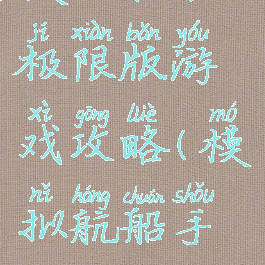 jí xiàn bǎn yóu
极限版游
xì gōng lüè mó
戏攻略(模
nǐ háng chuán shǒu
拟航船手